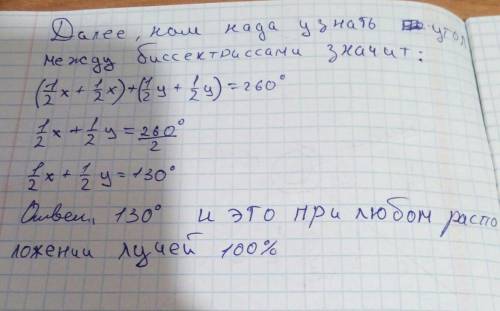 Далее, нам нада узнать угол
между биссектриссами значит:
(1/2 x + 1/2 x) + (1/2 y + 1/2 y) = 260°
1/2 x + 1/2 y = 260°/2
1/2 x + 1/2 y = 130°
Ответ. 130° и это при любом распо
ложении лучей 100%